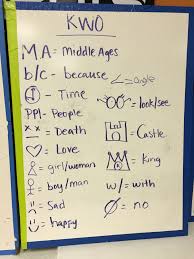 KWO
MA = Middle Ages
b/c - because
∠ = angle
- Time
= look/see
PPl- People
= Death
= Castle
= Love
= girl/woman
= King
= boy/man
w/ = with
= Sad
Ø = no
= happy